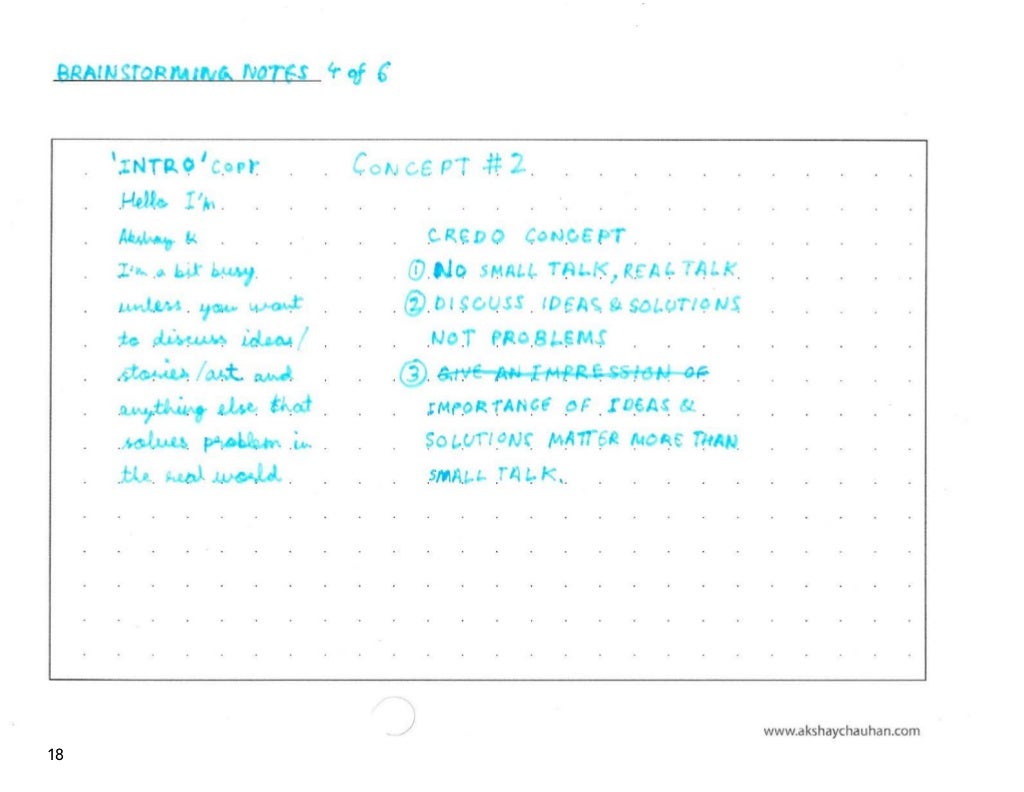 BRAINSTORMING NOTES 4 of 6
'INTRO' COPY
Hello I'm
Akshay &
I'm a bit busy
unless you want
to discuss ideas/
stories/art and
anything else that
solves problem in
the real world
CONCEPT #2
CREDO CONCEPT
① NO SMALL TALK, REAL TALK
② DISCUSS IDEAS & SOLUTIONS
NOT PROBLEMS
③ GIVE AN IMPRESSION OF
IMPORTANCE OF IDEAS &
SOLUTIONS MATTER MORE THAN
SMALL TALK.
www.akshaychauhan.com
18